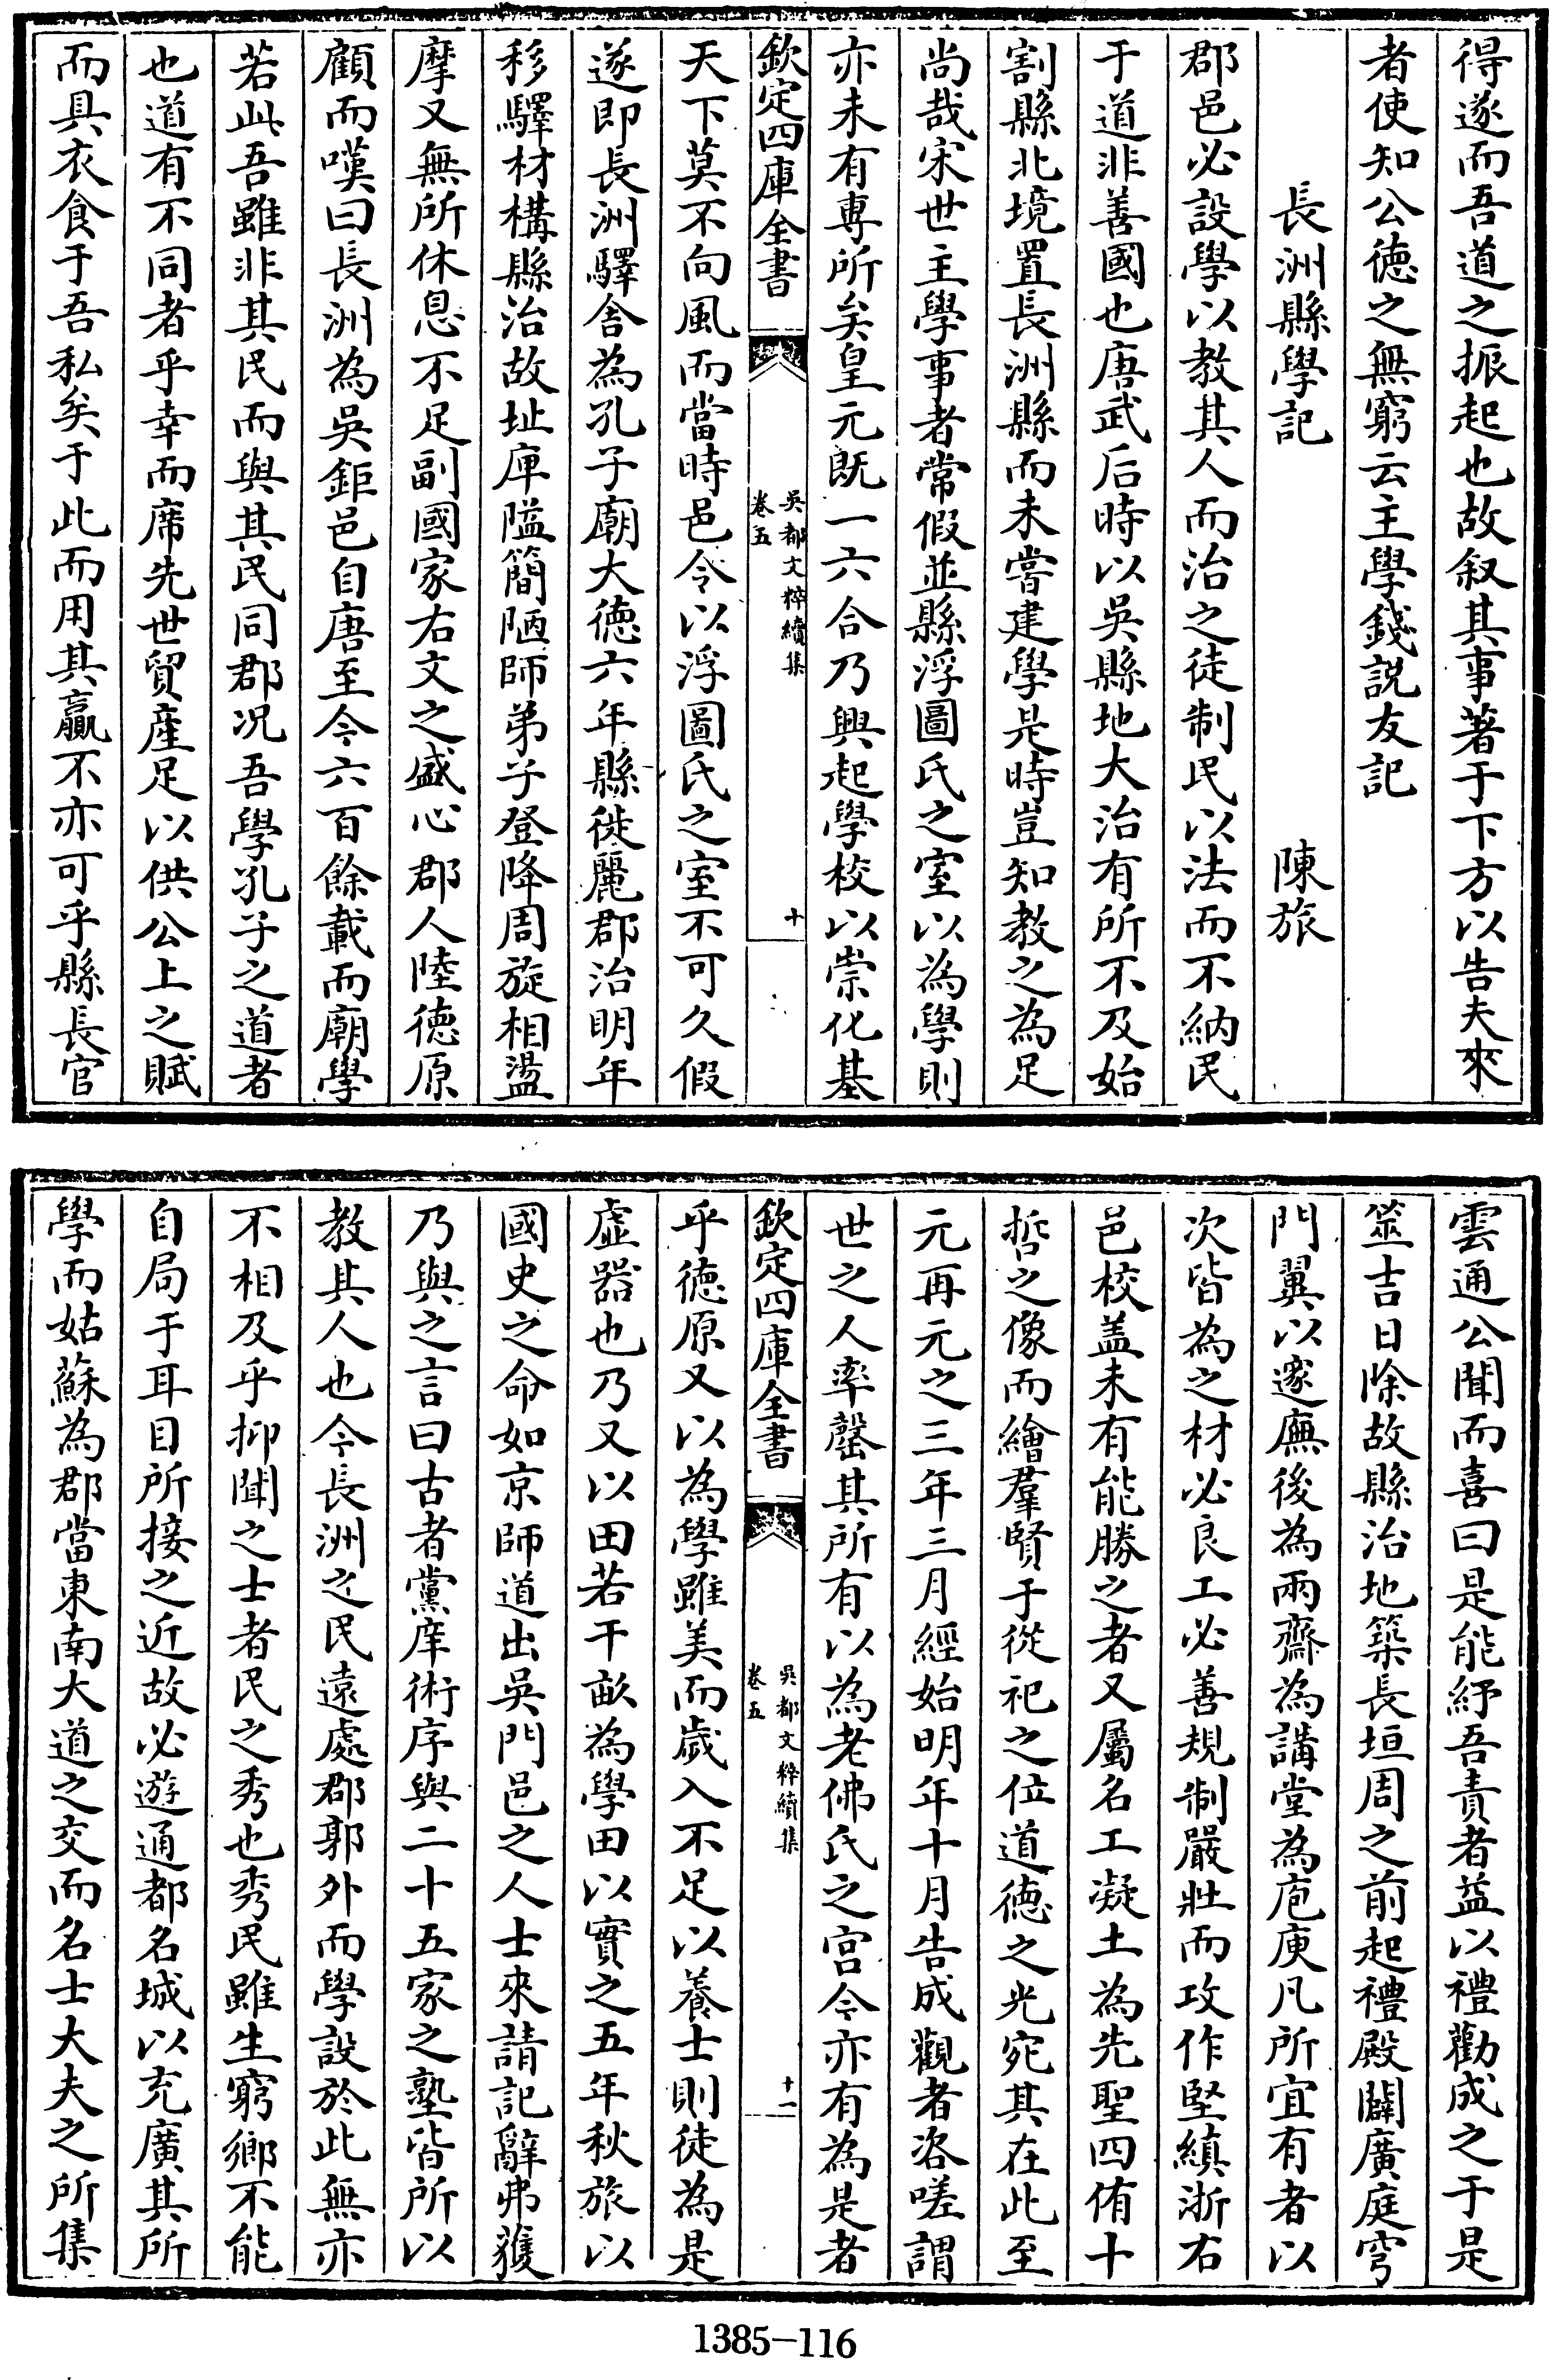 得遂而吾道之振起也故叙其事著于下方以告夫來
者使知公徳之無窮云主學錢説友記
長洲縣學記　陳旅
郡邑必設學以教其人而治之徒制民以法而不納民
于道非善國也唐武后時以吳縣地大治有所不及始
割縣北境置長洲縣而未嘗建學是時豈知教之為足
尚哉宋世主學事者常假並縣浮圖氏之室以為學則
亦未有專所矣皇元既一六合乃興起學校以崇化基
欽定四庫全書
吳都文粹續集
卷五
十
天下莫不向風而當時邑令以浮圖氏之室不可久假
遂即長洲驛舍為孔子廟大徳六年縣徙麗郡治明年
移驛材構縣治故址庳隘簡陋師弟子登降周旋相盪
摩又無所休息不足副國家右文之盛心郡人陸徳原
顧而嘆曰長洲為吳鉅邑自唐至今六百餘載而廟學
若此吾雖非其民而與其民同郡况吾學孔子之道者
也道有不同者乎幸而席先世貿産足以供公上之賦
而具衣食于吾私矣于此而用其贏不亦可乎縣長官
雲通公聞而喜曰是能紓吾責者益以禮勸成之于是
筮吉日除故縣治地築長垣周之前起禮殿闢廣庭穹
門翼以邃廡後為兩齋為講堂為庖庾凡所宜有者以
次皆為之材必良工必善規制嚴壯而攻作堅縝浙右
邑校盖未有能勝之者又屬名工凝土為先聖四侑十
哲之像而繪羣賢于從祀之位道徳之光宛其在此至
元再元之三年三月經始明年十月告成觀者咨嗟謂
世之人率罄其所有以為老佛氏之宫今亦有為是者
欽定四庫全書
吳都文粹續集
卷五
十一
乎徳原又以為學雖美而歲入不足以養士則徒為是
虚器也乃又以田若干畝為學田以實之五年秋旅以
國史之命如京師道出吳門邑之人士來請記辭弗獲
乃與之言曰古者黨庠術序與二十五家之塾皆所以
教其人也今長洲之民遠處郡郭外而學設於此無亦
不相及乎抑聞之士者民之秀也秀民雖生窮鄉不能
自局于耳目所接之近故必遊通都名城以充廣其所
學而姑蘇為郡當東南大道之交而名士大夫之所集
1385-116